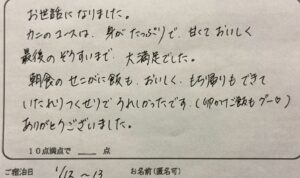 お世話になりました。
カニのコースは、身がたっぷりで、甘くておいしく
最後のぞうすいまで、大満足でした。
朝食のセコがに飯も、おいしく、もち帰りもできて
いたれりつくせりでうれしかったです。(卵かけご飯もグー♡)
ありがとうございました。
10点満点で 点
ご宿泊日 1/12~13 お名前(匿名可)